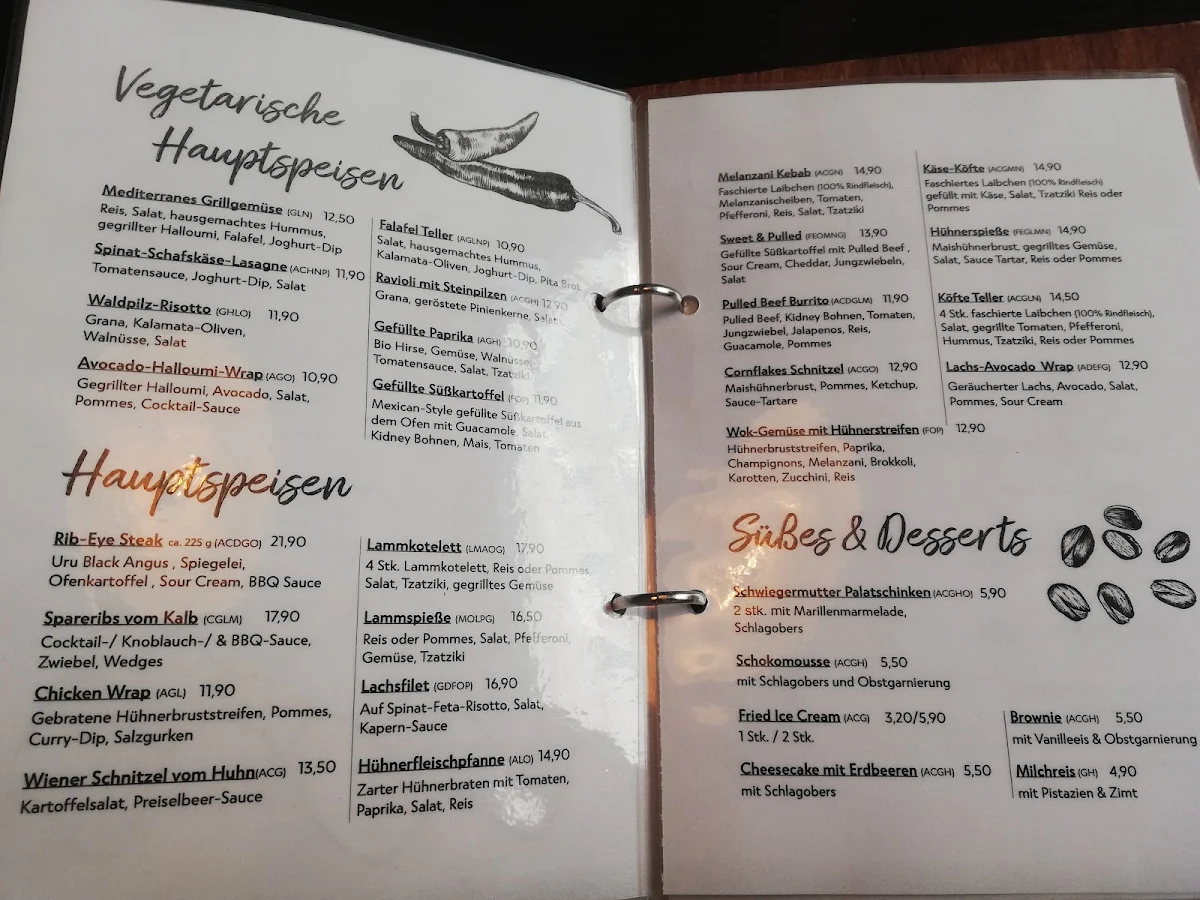 Vegetarische
Hauptspeisen
Mediterranes Grillgemüse (GLN) 12,50
Reis, Salat, hausgemachtes Hummus,
gegrillter Halloumi, Falafel, Joghurt-Dip
Spinat-Schafskäse-Lasagne (ACHNP) 11,90
Tomatensauce, Joghurt-Dip, Salat
Waldpilz-Risotto (GHLO) 11,90
Grana, Kalamata-Oliven,
Walnüsse, Salat
Avocado-Halloumi-Wrap (AGO) 10,90
Gegrillter Halloumi, Avocado, Salat,
Pommes, Cocktail-Sauce
Falafel Teller (AGLNP) 10,90
Salat, hausgemachtes Hummus,
Kalamata-Oliven, Joghurt-Dip, Pita Brot
Ravioli mit Steinpilzen (ACGH) 12,90
Grana, geröstete Pinienkerne, Salat
Gefüllte Paprika (AGH) 10,90
Bio Hirse, Gemüse, Walnüsse,
Tomatensauce, Salat, Tzatziki
Gefüllte Süßkartoffel (FOP) 11,90
Mexican-Style gefüllte Süßkartoffel aus
dem Ofen mit Guacamole, Salat,
Kidney Bohnen, Mais, Tomaten
Hauptspeisen
Rib-Eye Steak ca. 225 g (ACDGO) 21,90
Uru Black Angus , Spiegelei,
Ofenkartoffel , Sour Cream, BBQ Sauce
Spareribs vom Kalb (CGLM) 17,90
Cocktail-/ Knoblauch-/ & BBQ-Sauce,
Zwiebel, Wedges
Chicken Wrap (AGL) 11,90
Gebratene Hühnerbruststreifen, Pommes,
Curry-Dip, Salzgurken
Wiener Schnitzel vom Huhn(ACG) 13,50
Kartoffelsalat, Preiselbeer-Sauce
Lammkotelett (LMAOG) 17,90
4 Stk. Lammkotelett, Reis oder Pommes,
Salat, Tzatziki, gegrilltes Gemüse
Lammspieße (MOLPG) 16,50
Reis oder Pommes, Salat, Pfefferoni,
Gemüse, Tzatziki
Lachsfilet (GDFOP) 16,90
Auf Spinat-Feta-Risotto, Salat,
Kapern-Sauce
Hühnerfleischpfanne (ALO) 14,90
Zarter Hühnerbraten mit Tomaten,
Paprika, Salat, Reis
Melanzani Kebab (ACGN) 14,90
Faschierte Laibchen (100% Rindfleisch),
Melanzanischeiben, Tomaten,
Pfefferoni, Reis, Salat, Tzatziki
Sweet & Pulled (FEOMNG) 13,90
Gefüllte Süßkartoffel mit Pulled Beef ,
Sour Cream, Cheddar, Jungzwiebeln,
Salat
Pulled Beef Burrito (ACDGLM) 11,90
Pulled Beef, Kidney Bohnen, Tomaten,
Jungzwiebel, Jalapenos, Reis,
Guacamole, Pommes
Cornflakes Schnitzel (ACGO) 12,90
Maishühnerbrust, Pommes, Ketchup,
Sauce-Tartare
Wok-Gemüse mit Hühnerstreifen (FOP) 12,90
Hühnerbruststreifen, Paprika,
Champignons, Melanzani, Brokkoli,
Karotten, Zucchini, Reis
Käse-Köfte (ACGMN) 14,90
Faschiertes Laibchen (100% Rindfleisch)
gefüllt mit Käse, Salat, Tzatziki Reis oder
Pommes
Hühnerspieße (FEGLMN) 14,90
Maishühnerbrust, gegrilltes Gemüse,
Salat, Sauce Tartar, Reis oder Pommes
Köfte Teller (ACGLN) 14,50
4 Stk. faschierte Laibchen (100% Rindfleisch),
Salat, gegrillte Tomaten, Pfefferoni,
Hummus, Tzatziki, Reis oder Pommes
Lachs-Avocado Wrap (ADEFG) 12,90
Geräucherter Lachs, Avocado, Salat,
Pommes, Sour Cream
Süßes & Desserts
Schwiegermutter Palatschinken (ACGHO) 5,90
2 stk. mit Marillenmarmelade,
Schlagobers
Schokomousse (ACGH) 5,50
mit Schlagobers und Obstgarnierung
Fried Ice Cream (ACG) 3,20/5,90
1 Stk. / 2 Stk.
Cheesecake mit Erdbeeren (ACGH) 5,50
mit Schlagobers
Brownie (ACGH) 5,50
mit Vanilleeis & Obstgarnierung
Milchreis (GH) 4,90
mit Pistazien & Zimt